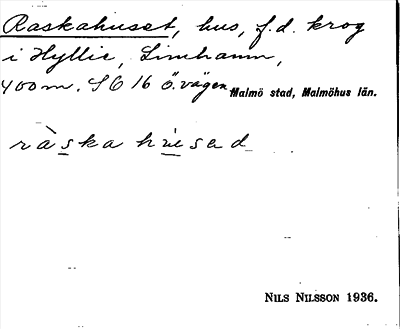 Raskahuset, hus, f.d. krog
i Hyllie, Limhamn,
400m. SO 16 Ö.vägen
Malmö stad, Malmöhus län.
ràska hu̇sad
NILS NILSSON 1936.